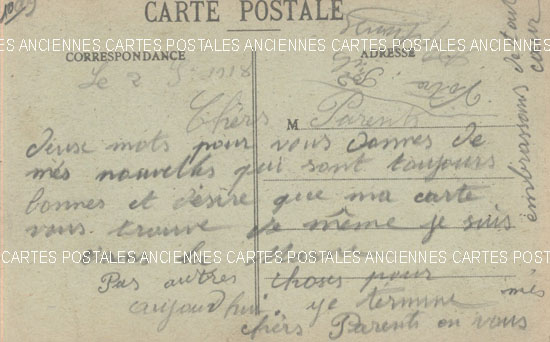 CARTE POSTALE
CARTES POSTALES ANCIENNES CARTES POSTALES ANCIENNES CARTES POSTALES
CORRESPONDANCE
ADRESSE
Le 2 1918
Chers Parents
M
deux mots pour vous donnes de
més nouvelles qui sont toujours
bonnes et désire que ma carte
vous trouve de même je suis
ANCIENNES CARTES POSTALES ANCIENNES CARTES POSTALES ANCIENNES CARTES POSTALES
Pas autres choses pour
aujourd'hui je termine més
chèrs Parents en vous
émbrassans de tout
coeur
Votre